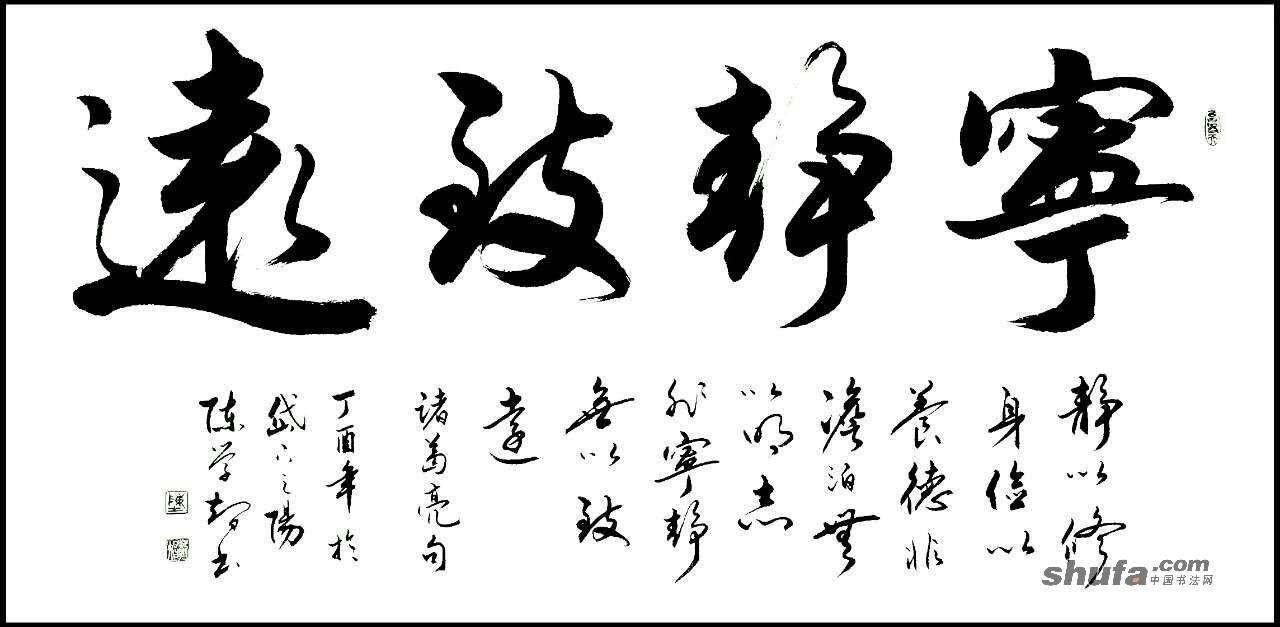 寧靜致遠
靜以修
身儉以
養德非
澹泊無
以明志
非寧靜
無以致
遠
諸葛亮句
丁酉年於
岱下之陽
陳學书
shufa.com
中国书法网